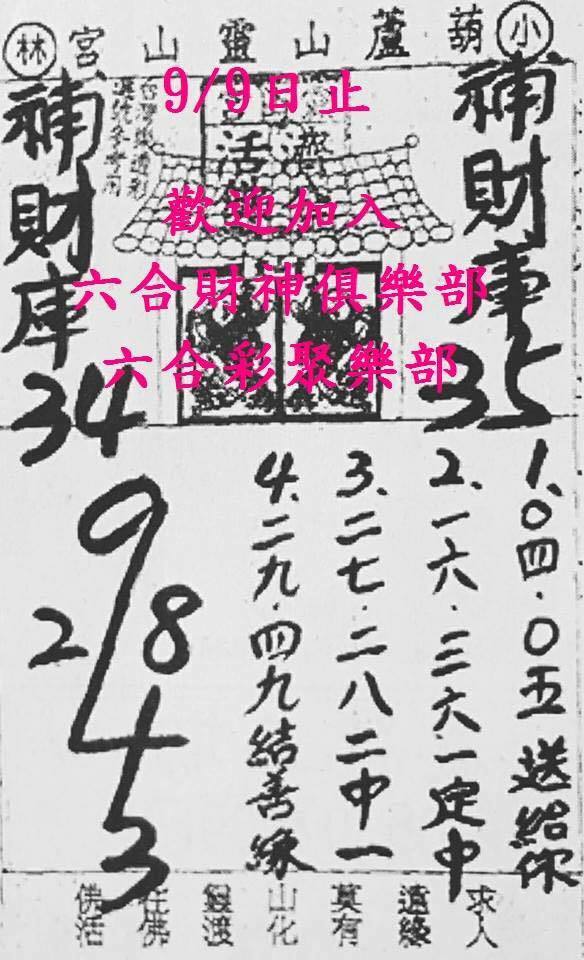 小 葫蘆山靈山宮 林
9/9日止
歡迎加入
六合財神俱樂部
六合彩聚樂部
補財庫
35
補財庫
34
濟
活
1、〇四·〇五送給你
2、一六·三六一定中
3、二七·二八二中一
4、二九·四九結善緣
9
2 8
4
3
求人
遠緣
莫有
山化
靈渡
在佛
佛活